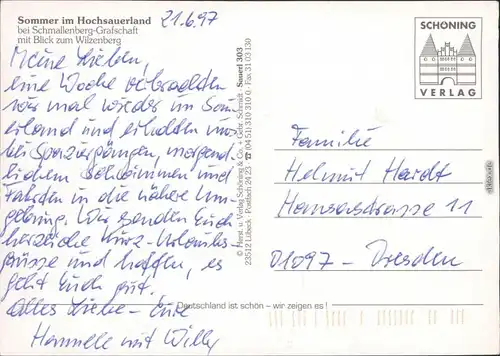 Sommer im Hochsauerland
bei Schmallenberg-Grafschaft
mit Blick zum Wilzenberg
21.6.97
Meine Lieben,
eine Woche verbrachten
wir mal wieder im Sau-
erland und erholten uns
bei Spaziergängen, morgend-
lichem Schwimmen und
Fahrten in die nähere Um-
gebung. Wir senden Euch
herzliche Kurz-Urlaubs-
grüsse und hoffen, es
geht Euch gut.
Alles Liebe - Eure
Hannele mit Willy
© Herst. u. Verlag Schöning & Co. + Gebr. Schmidt · Sauerl 303
23512 Lübeck · Postfach 24 23 ☎ (04 51) 310 310 0 · Fax 31 03 130
SCHÖNING
VERLAG
Familie
Helmut Hardt
Hansastrasse 11
01097 - Dresden
Deutschland ist schön – wir zeigen es!